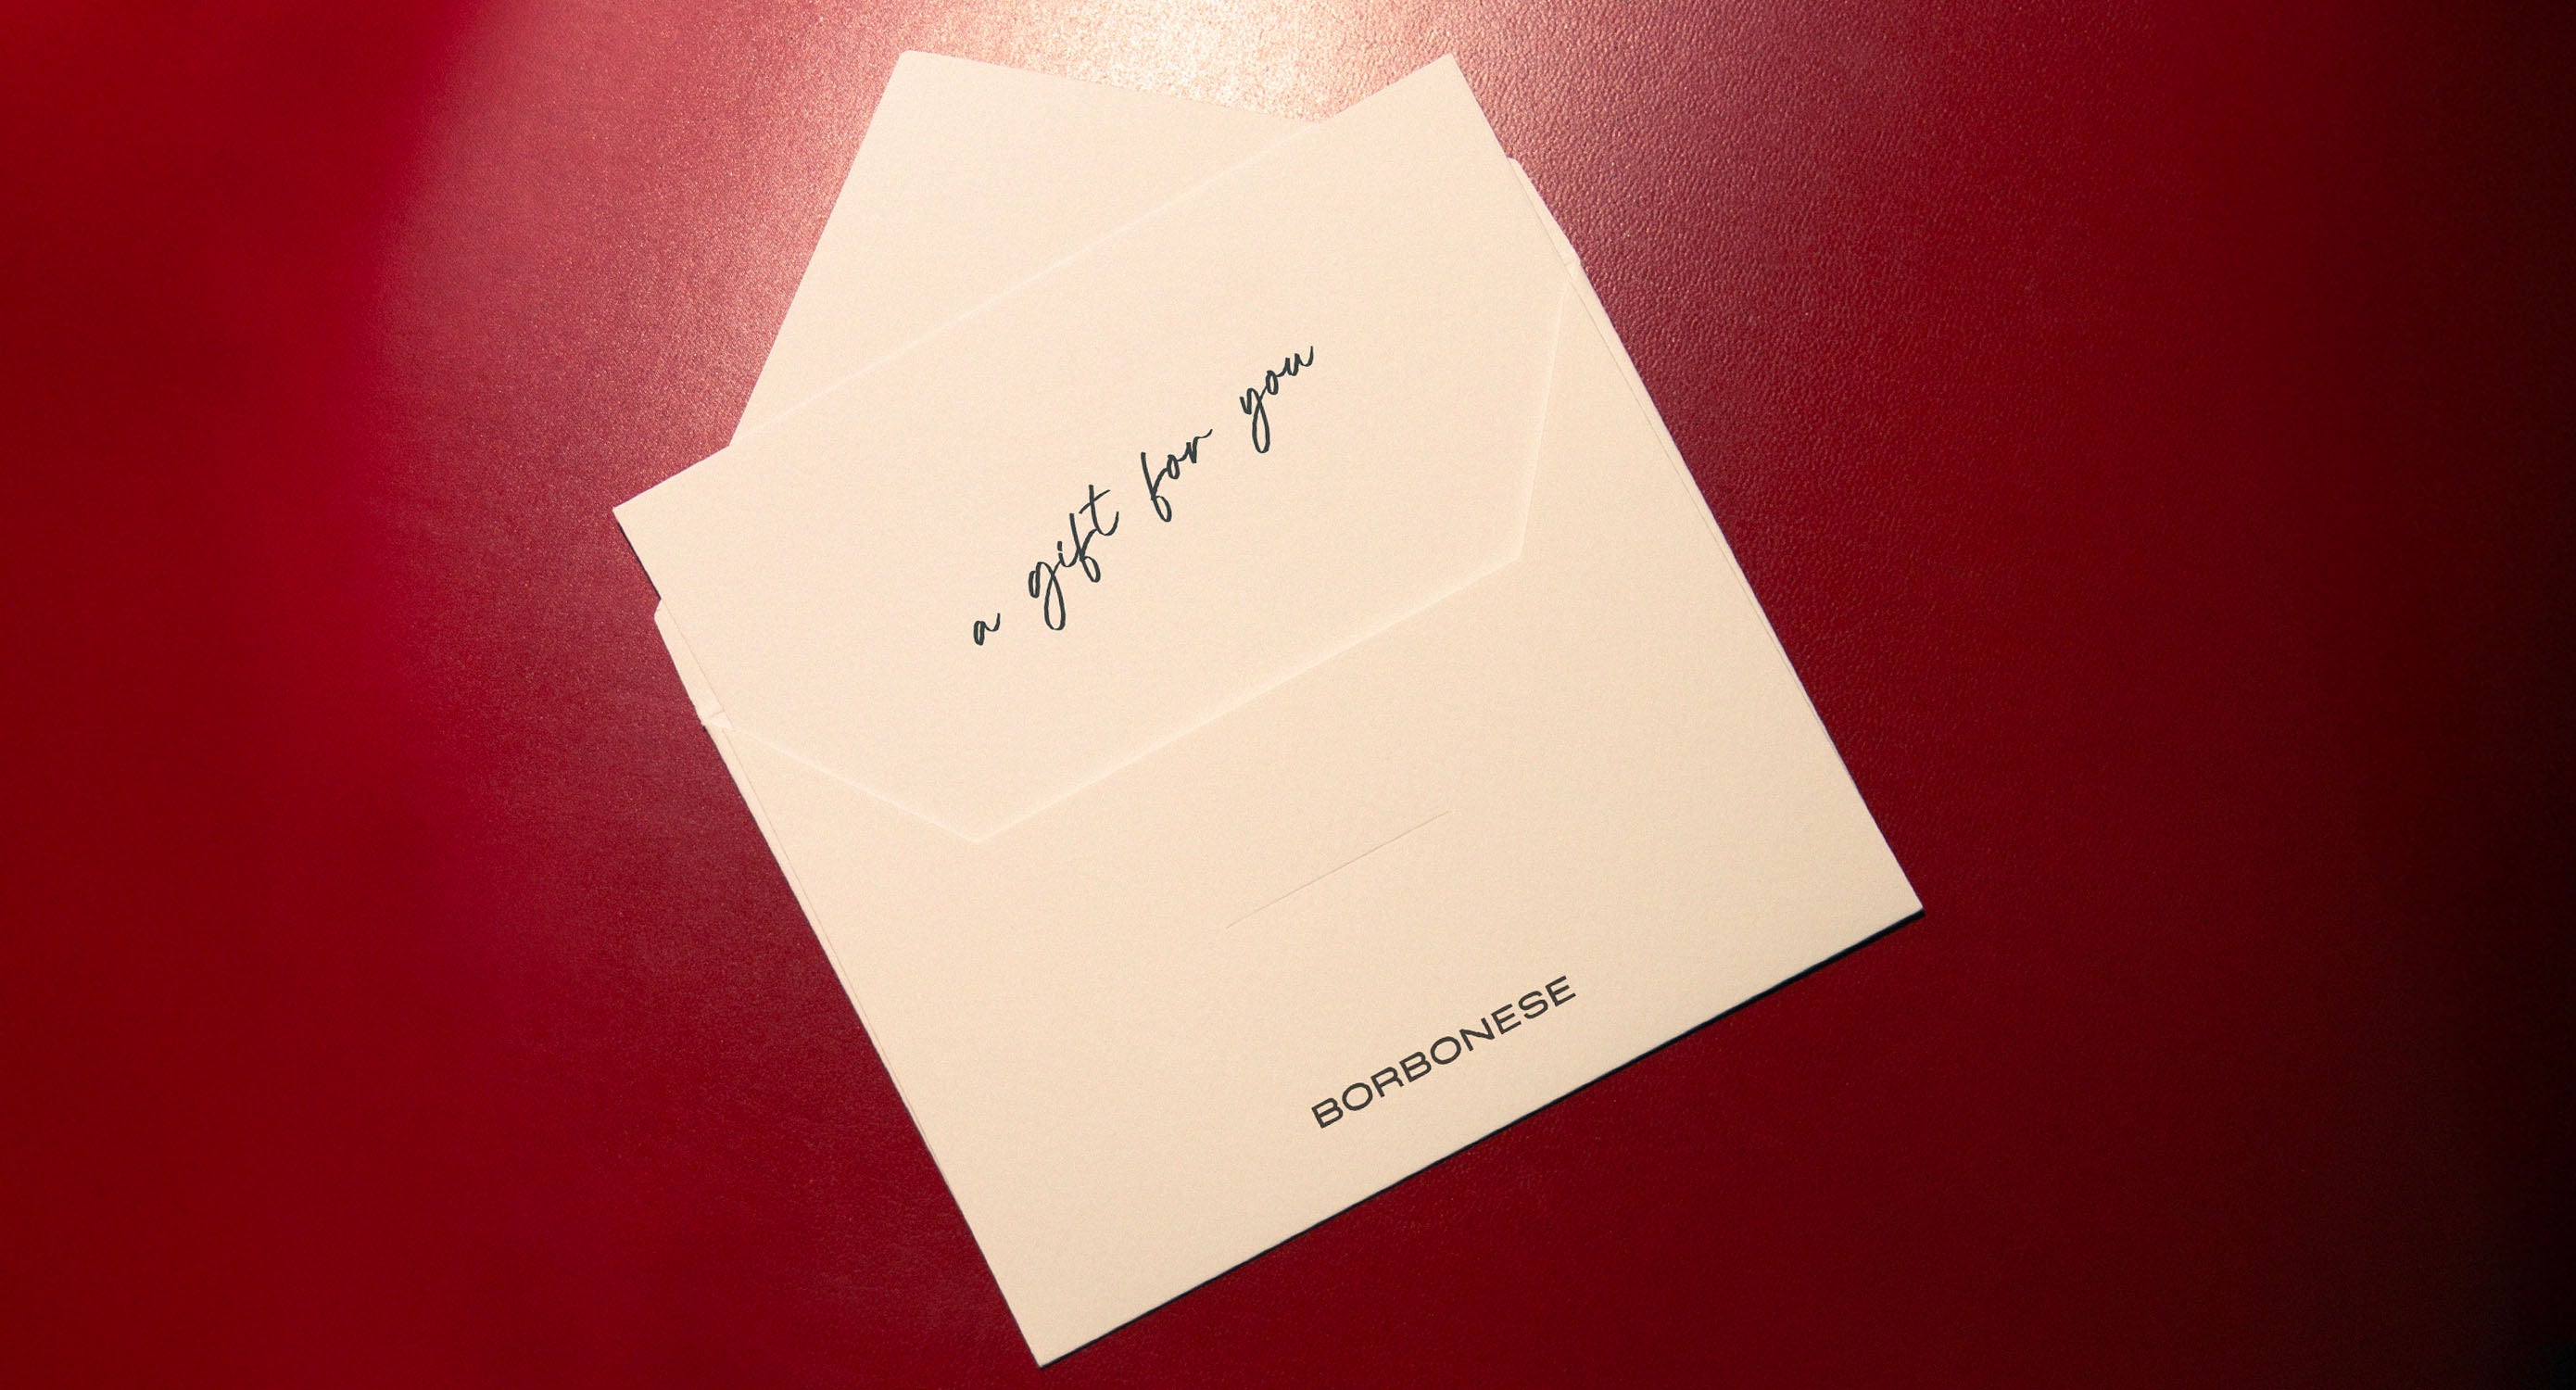 a gift for you
BORBONESE